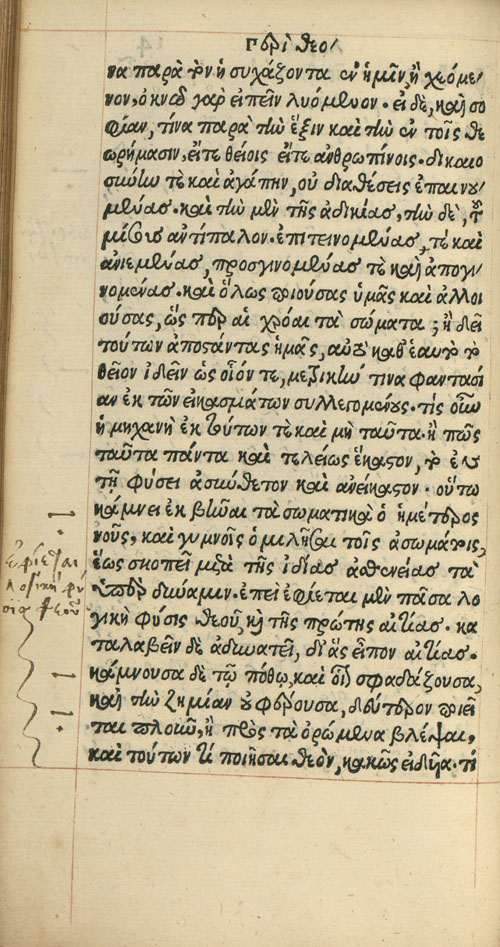 Γρηγ. θεο
να παρὰ τὸν ἡσυχάζοντα ἐν ἡμῖν, ἢ χεόμε
νον, ὀκνῶ γὰρ εἰπεῖν λυόμενον. εἰ δὲ, καὶ σο
φίαν, τίνα παρὰ τὴν ἕξιν καὶ τὴν ἐν τοῖς θε
ωρήμασιν, εἴτε θείοις εἴτε ἀνθρωπίνοις. δικαιο
σύνην τε καὶ ἀγάπην, οὐ διαθέσεις ἐπαινου
μένας. καὶ τὴν μὲν τῆς ἀδικίας, τὴν δὲ, τοῦ
μίσους ἀντίπαλον. ἐπιτεινομένας, τε καὶ
ἀνιεμένας, προσγινομένας τε καὶ ἀπογι
νομένας. καὶ ὅλως ποιούσας ὑμᾶς καὶ ἀλλοι
ούσας, ὥς περ αἱ χρόαι τὰ σώματα; ἢ δεῖ
τούτων ἀποστάντας ἡμᾶς, αὐτὸ καθ' ἑαυτὸ τὸ
θεῖον ἰδεῖν ὡς οἷόν τε, μερικήν τινα φαντασί
αν ἐκ τῶν εἰκασμάτων συλλεγομένους. τίς οὖν
ἡ μηχανὴ ἐκ τούτων τε καὶ μὴ ταῦτα. ἢ πῶς
ταῦτα πάντα καὶ τελείως ἕκαστον, τὸ ἓν
τῇ φύσει ἀσύνθετον καὶ ἀνείκαστον. οὕτω
κάμνει ἐκβῆναι τὰ σωματικὰ ὁ ἡμέτερος
νοῦς, καὶ γυμνοῖς ὁμιλῆσαι τοῖς ἀσωμάτοις,
ἕως σκοπεῖ μετὰ τῆς ἰδίας ἀσθενείας τὰ
ὑπὲρ δύναμιν. ἐπεὶ ἐφίεται μὲν πᾶσα λο
γικὴ φύσις θεοῦ, καὶ τῆς πρώτης αἰτίας. κα
ταλαβεῖν δὲ ἀδυνατεῖ, δι' ἃς εἶπον αἰτίας.
κάμνουσα δὲ τῷ πόθῳ, καὶ οἷον σφαδάζουσα,
καὶ τὴν ζημίαν οὐ φέρουσα, δεύτερον ποιεῖ
ται πλοῦν, ἢ πρὸς τὰ ὁρώμενα βλέψαι,
καὶ τούτων τι ποιῆσαι θεὸν, κακῶς εἰδυῖα. τί
ἐφίεται
λογικὴ φύ
σις θεοῦ